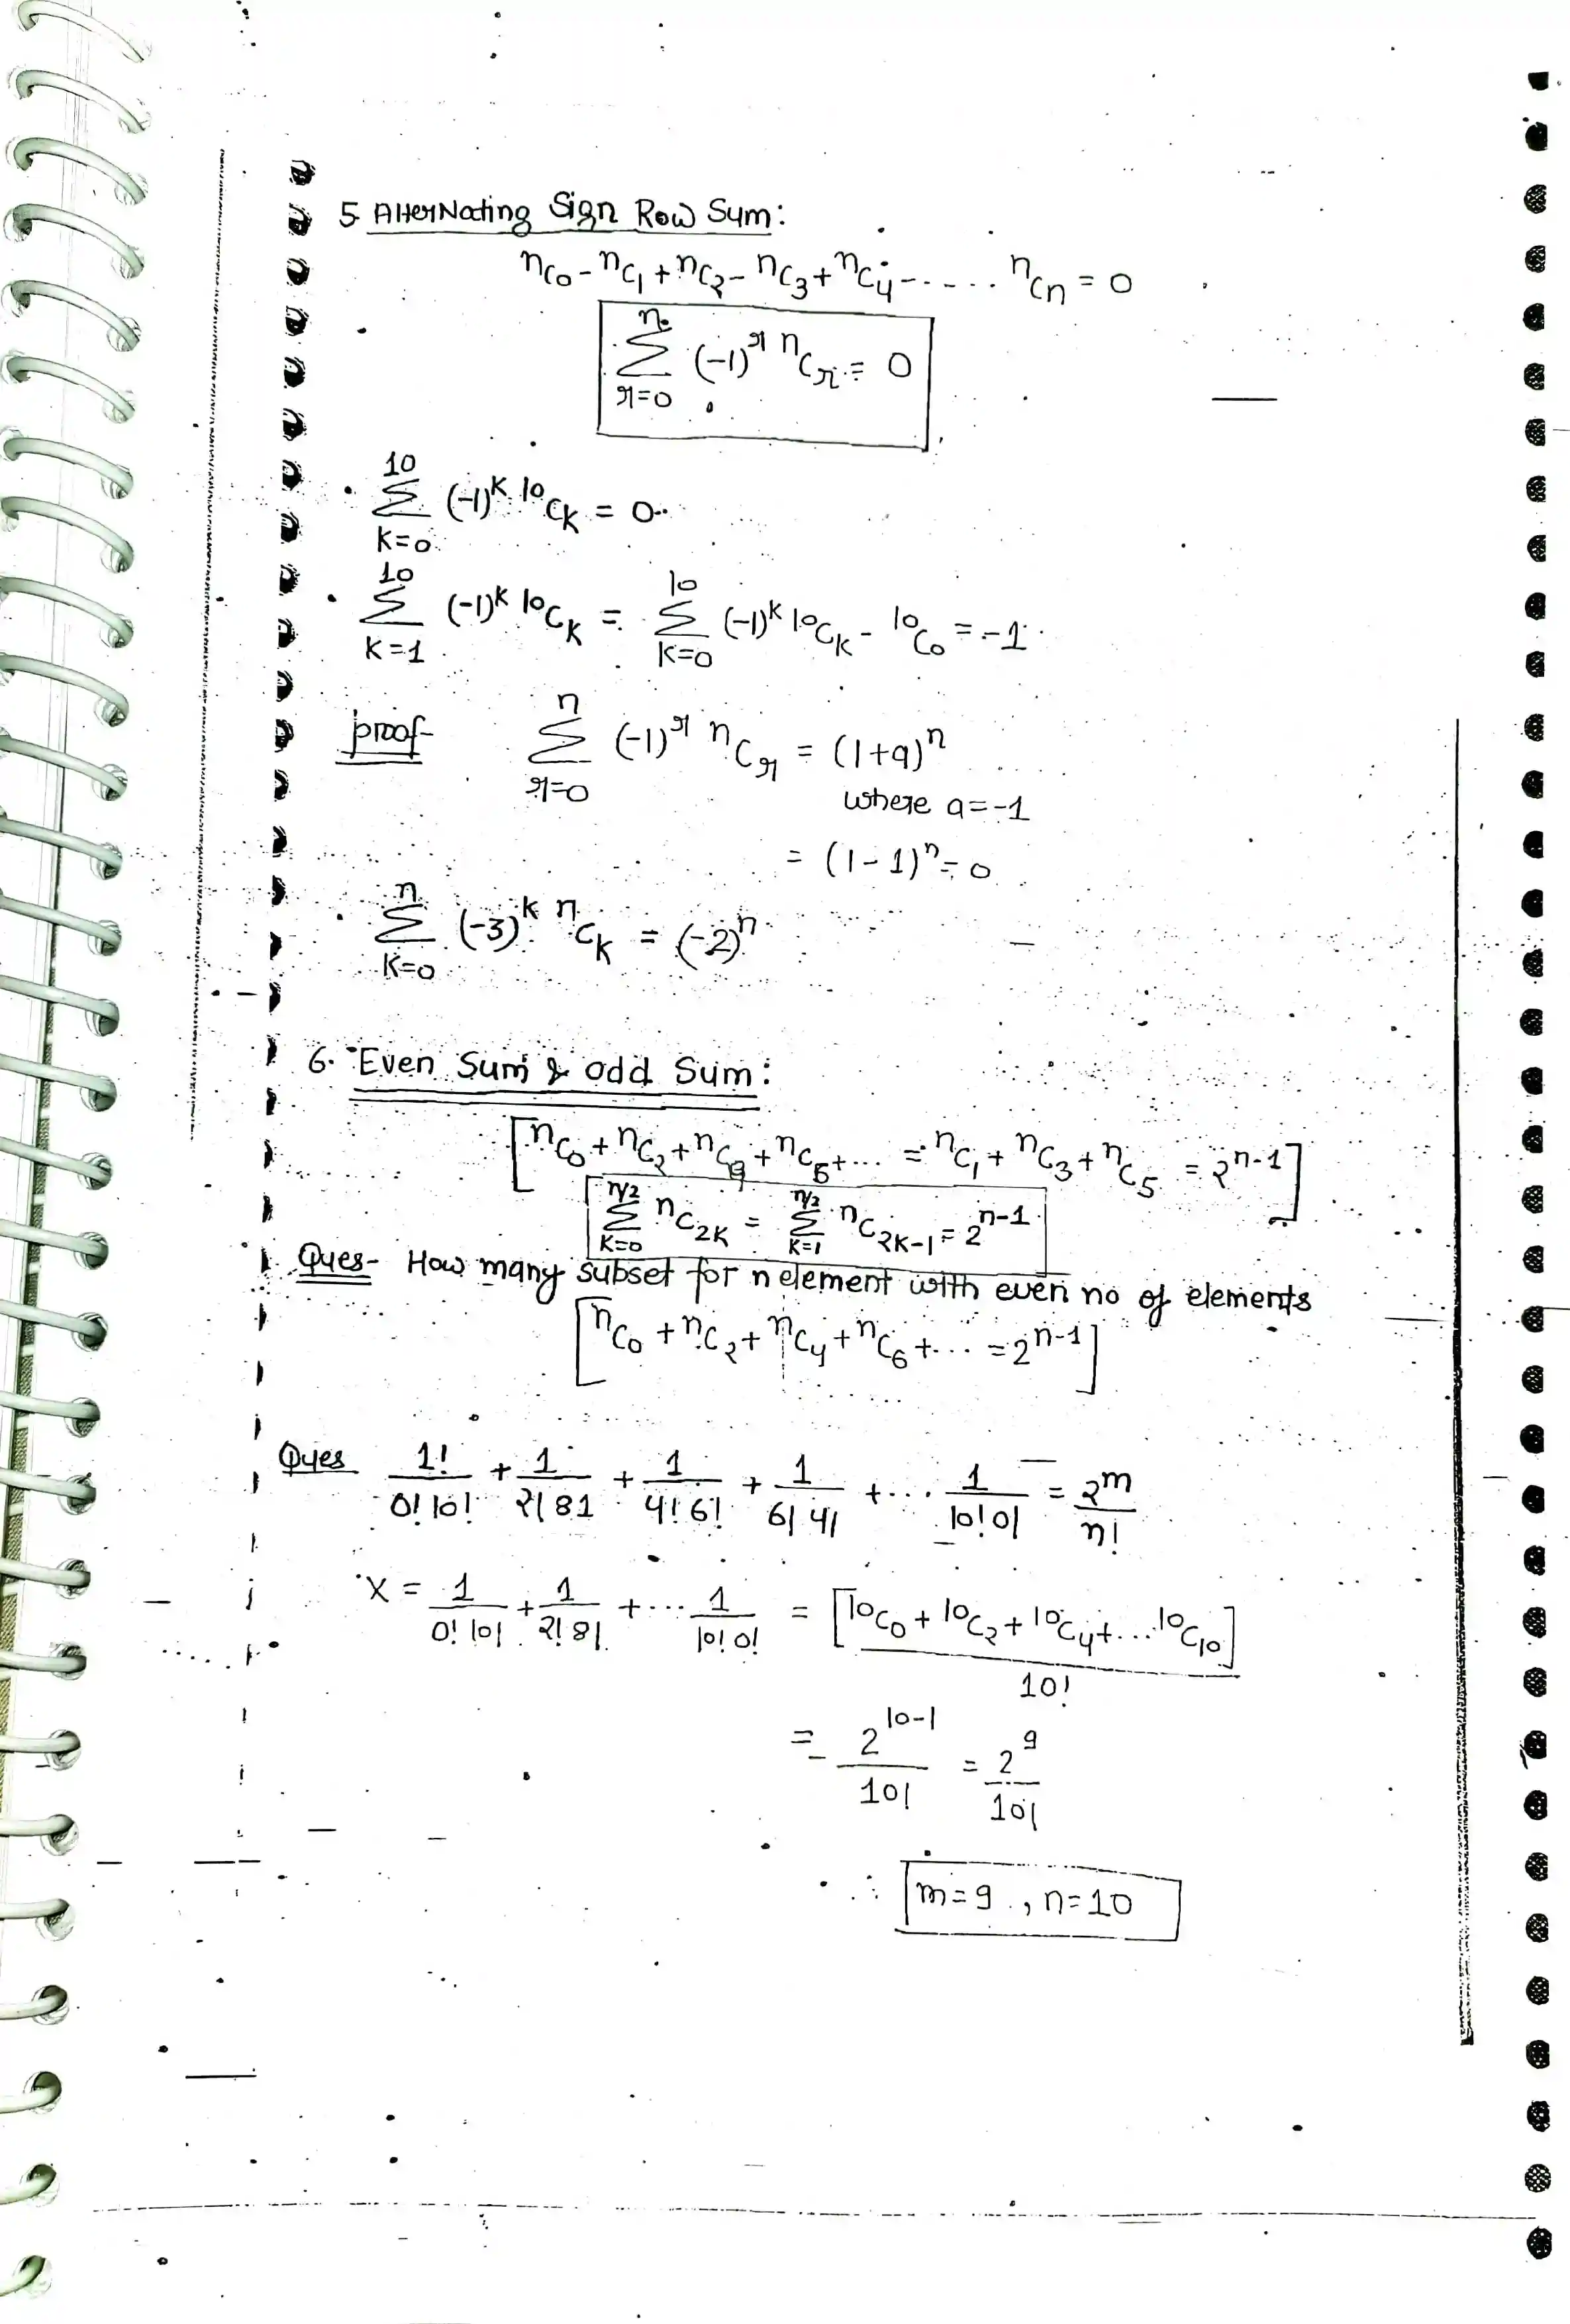 5. Alternating Sign Row Sum:
ⁿC₀ - ⁿC₁ + ⁿC₂ - ⁿC₃ + ⁿC₄ - ..... ⁿCₙ = 0
n
∑ (-1)^r ⁿC_r = 0
r=0
10
∑ (-1)^K ¹⁰C_K = 0
K=0
10 10
∑ (-1)^K ¹⁰C_K = ∑ (-1)^K ¹⁰C_K - ¹⁰C₀ = -1
K=1 K=0
proof- n
∑ (-1)^r ⁿC_r = (1+a)^n
r=0 where a=-1
= (1-1)^n = 0
n
∑ (-3)^k ⁿC_K = (-2)^n
K=0
6. Even Sum & odd Sum:
[ⁿC₀ + ⁿC₂ + ⁿC + ⁿC₅ + ... = ⁿC₁ + ⁿC₃ + ⁿC₅ = 2^(n-1)]
n/2 n/2
∑ ⁿC_2K = ∑ ⁿC_2K-1 = 2^(n-1)
K=0 K=1
Ques- How many subset for n element with even no of elements
[ⁿC₀ + ⁿC₂ + ⁿC₄ + ⁿC₆ + ... = 2^(n-1)]
Ques 1!/0!10! + 1/2!81 + 1/4!6! + 1/6!4! + ... 1/10!0! = 2^m/n!
X = 1/0!10! + 1/2!8! + ... 1/10!0! = [¹⁰C₀ + ¹⁰C₂ + ¹⁰C₄ + ... ¹⁰C₁₀]/10!
= 2^(10-1)/10! = 2^9/10!
∴ m=9, n=10